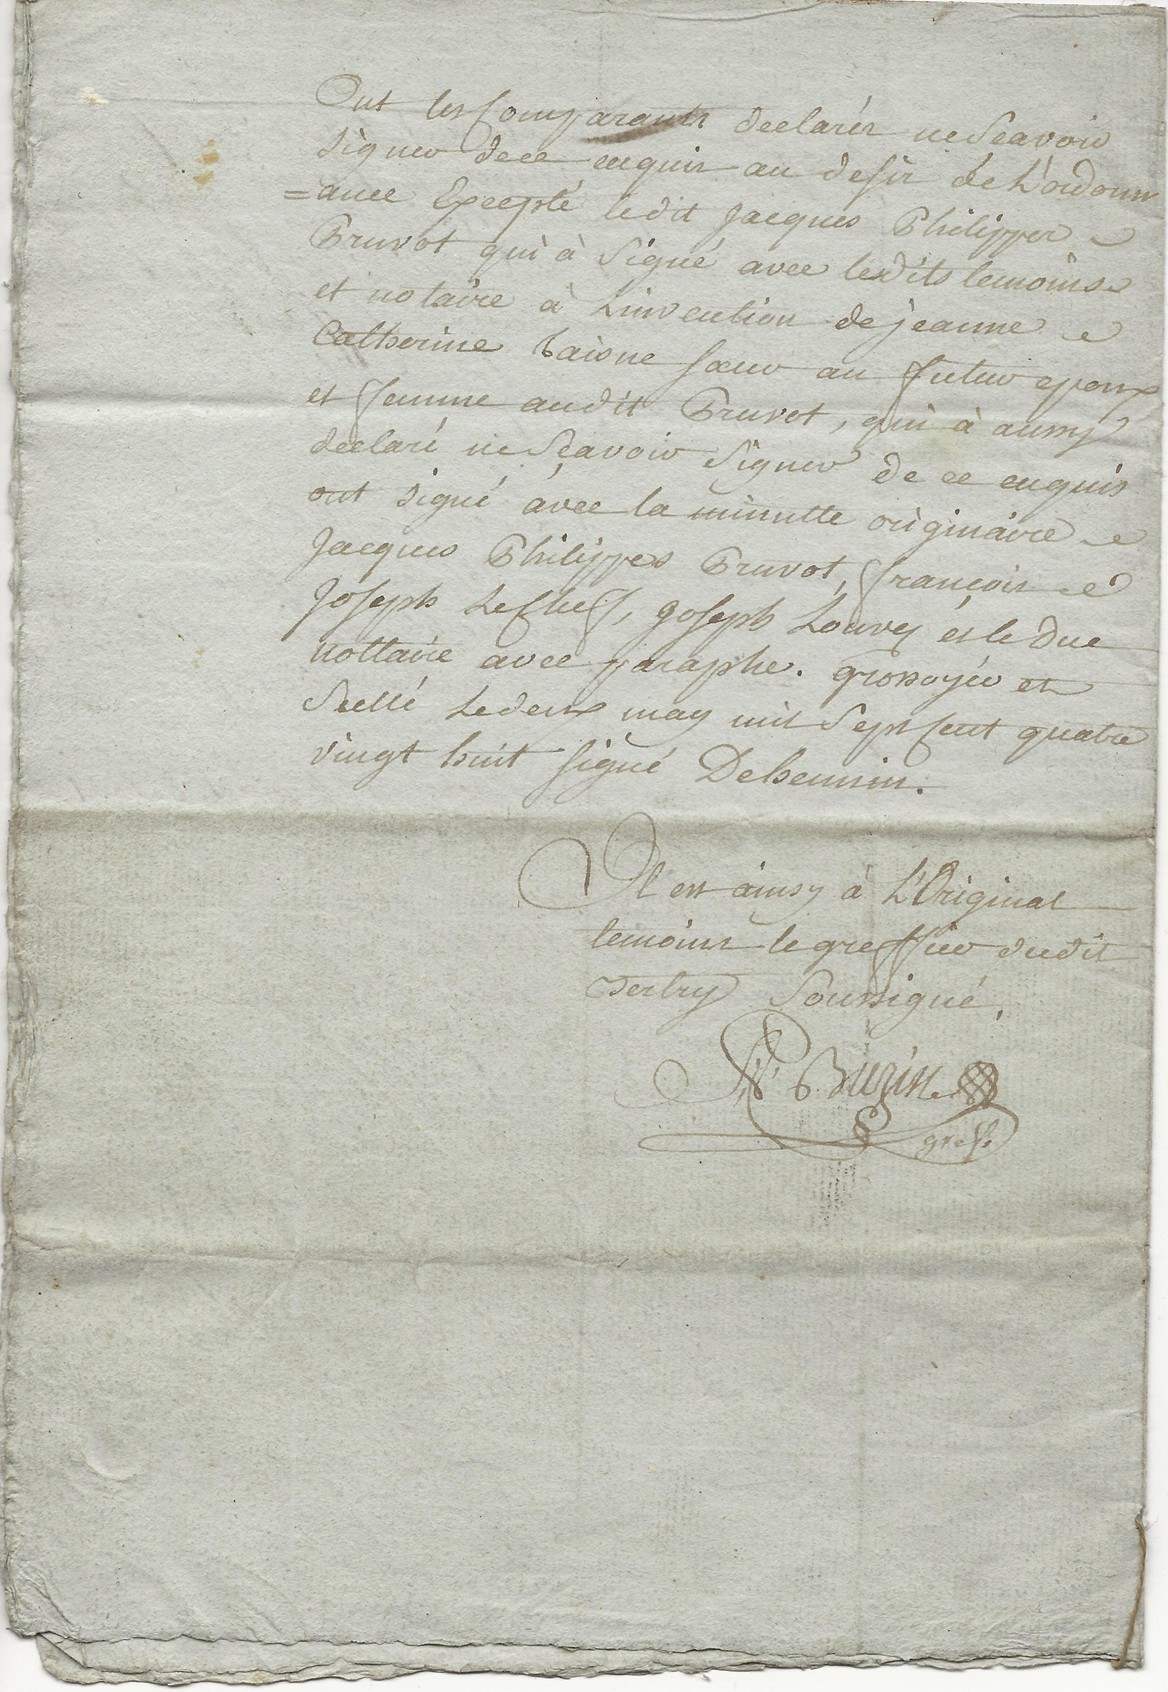 Ont les Comparants declarés ne Scavoir
Signer de ce enquis au desir de L'ordonn
=ance Excepté ledit Jacques Philippes
Pruvot qui à Signé avec lesdits temoins
et notaire à Linvention de jeanne
Catherine taisne soeur au futur epoux
et femme audit Pruvot, qui à aussy
declaré ne Scavoir Signer de ce enquis
ont signé avec la minutte originaire
Jacques Philippes Pruvot, francois
Joseph Leflief, Joseph Louvez et le due
nottaire avec paraphe. grossoyée et
Scellé Le deux may mil Sept Cent quatre
vingt huit signé Dehennin.
Il est ainsy à L'Original
temoins le greffier dudit
Soussigné,
greff.